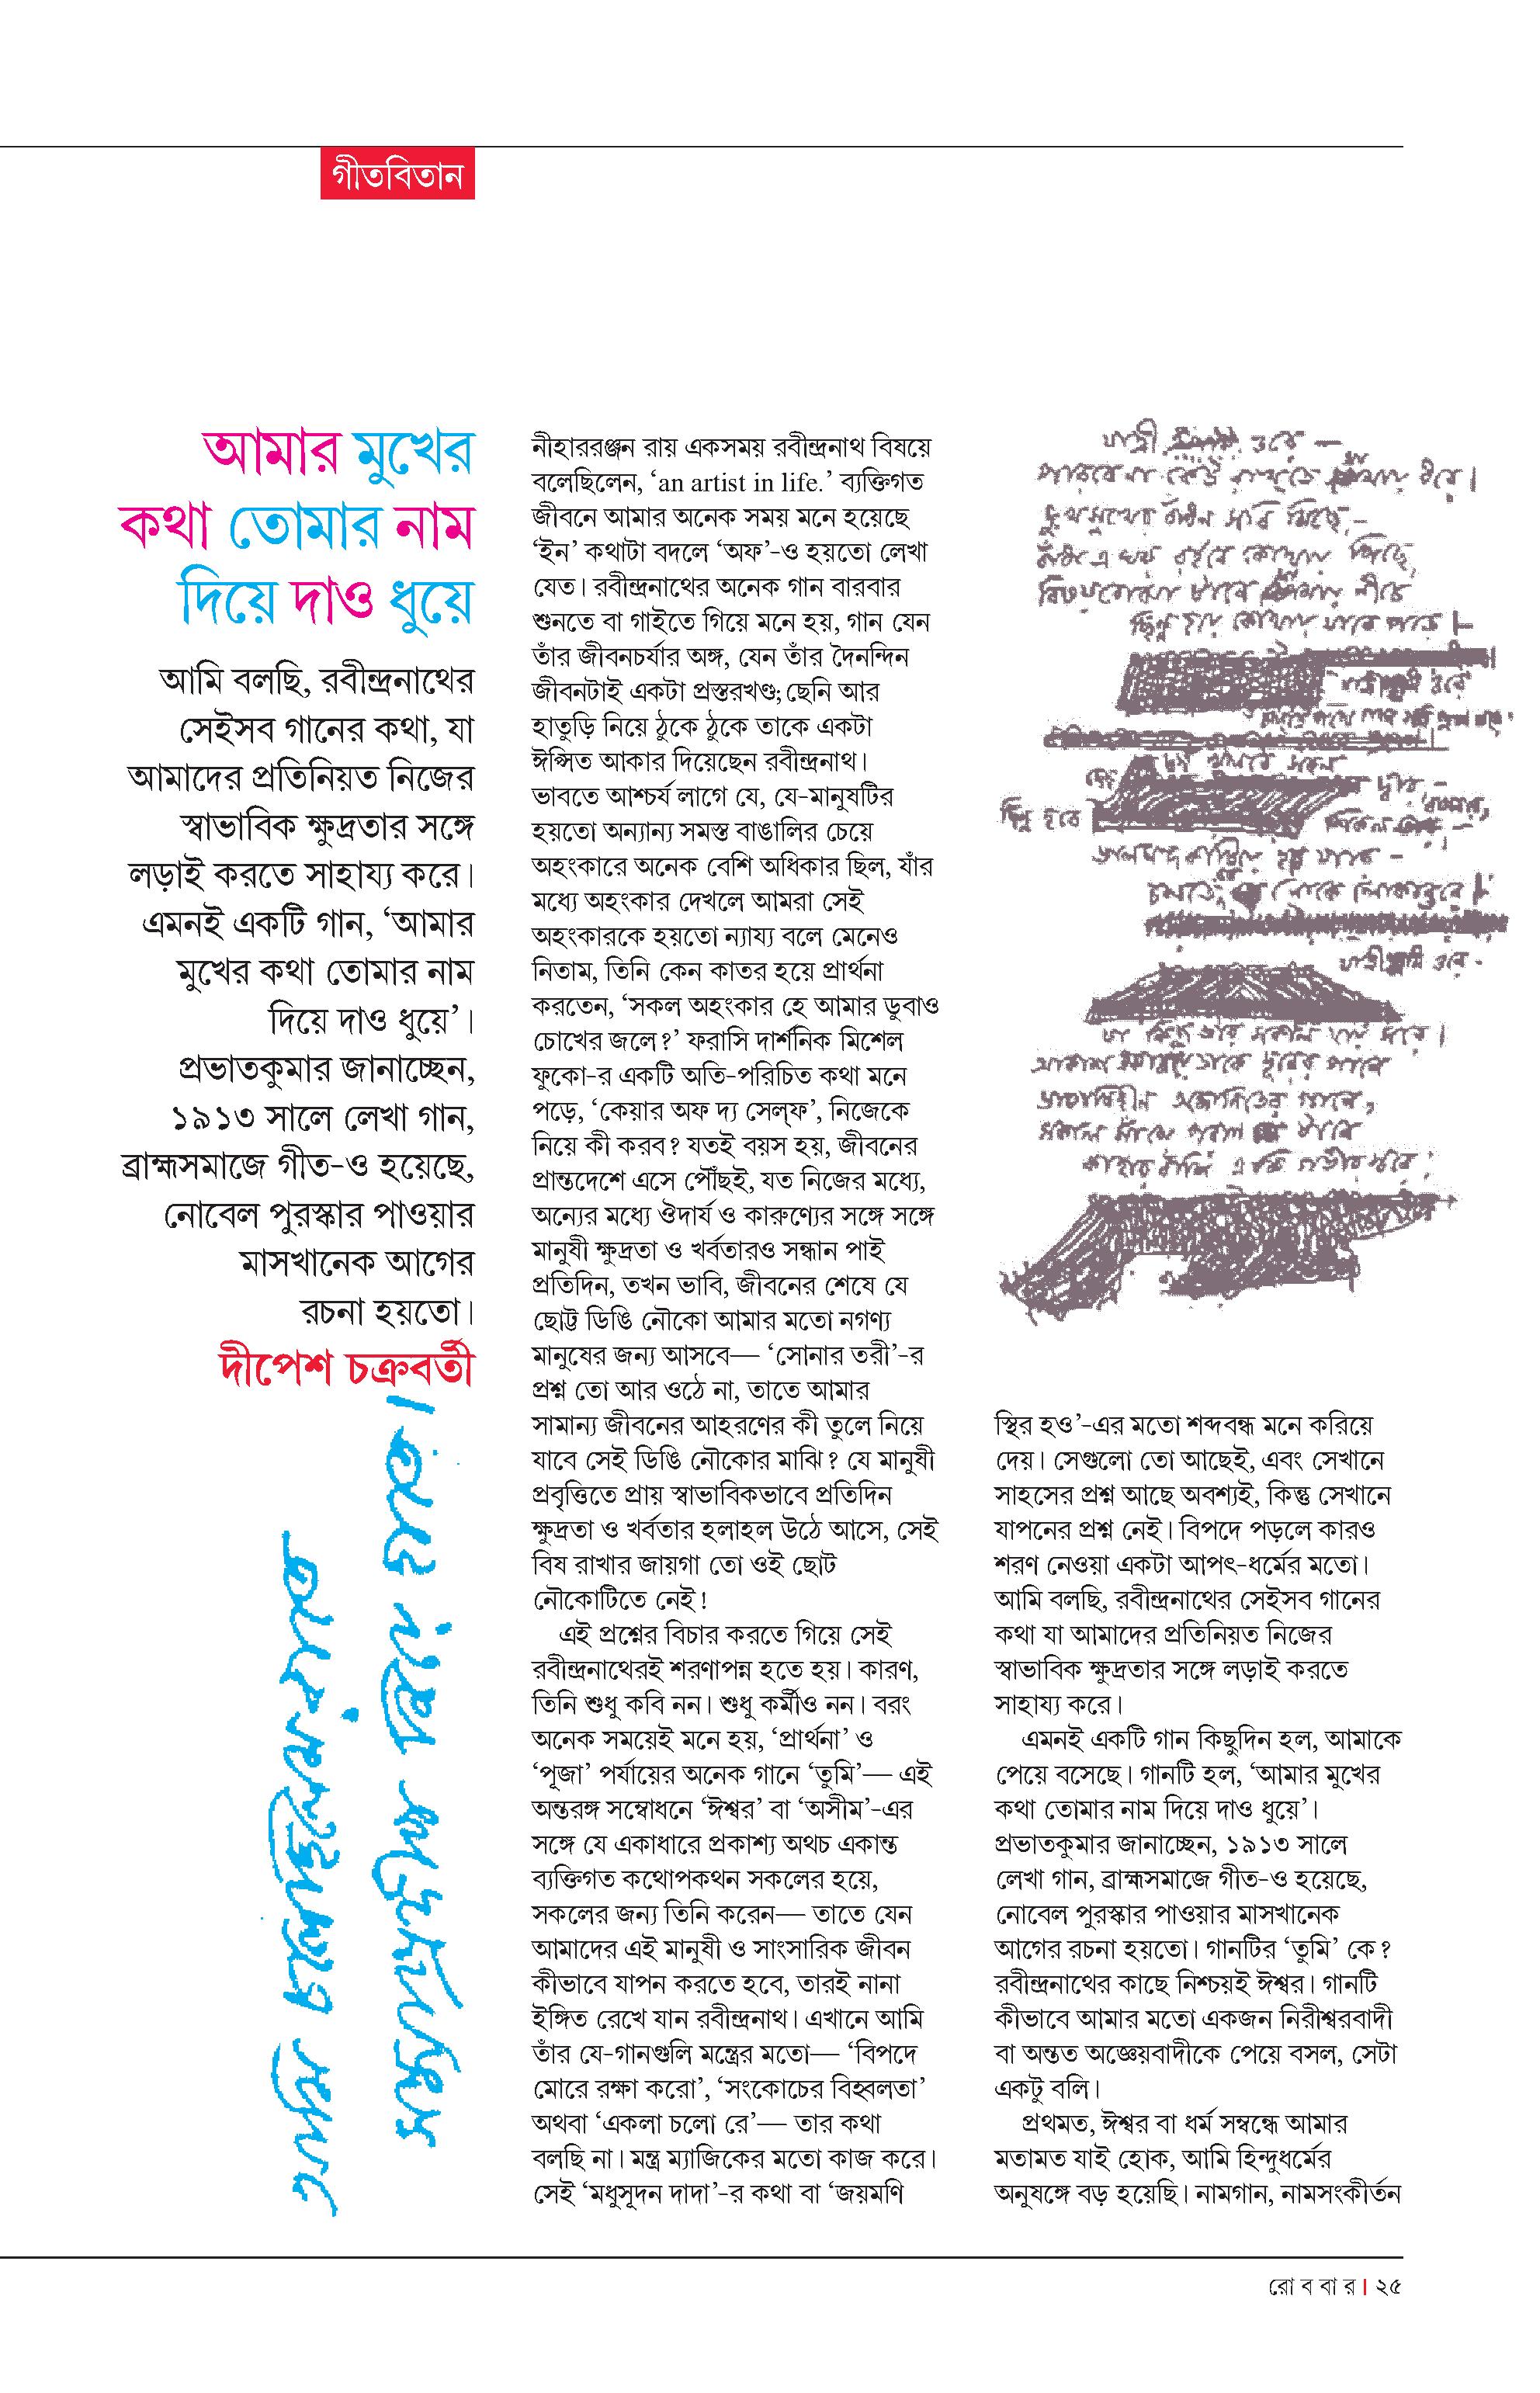 গীতবিতান
আমার মুখের
কথা তোমার নাম
দিয়ে দাও ধুয়ে
আমি বলছি, রবীন্দ্রনাথের
সেইসব গানের কথা, যা
আমাদের প্রতিনিয়ত নিজের
স্বাভাবিক ক্ষুদ্রতার সঙ্গে
লড়াই করতে সাহায্য করে।
এমনই একটি গান, ‘আমার
মুখের কথা তোমার নাম
দিয়ে দাও ধুয়ে’।
প্রভাতকুমার জানাচ্ছেন,
১৯১৩ সালে লেখা গান,
ব্রাহ্মসমাজে গীত-ও হয়েছে,
নোবেল পুরস্কার পাওয়ার
মাসখানেক আগের
রচনা হয়তো।
দীপেশ চক্রবর্তী
নীহাররঞ্জন রায় একসময় রবীন্দ্রনাথ বিষয়ে
বলেছিলেন, ‘an artist in life.’ ব্যক্তিগত
জীবনে আমার অনেক সময় মনে হয়েছে
‘ইন’ কথাটা বদলে ‘অফ’-ও হয়তো লেখা
যেত। রবীন্দ্রনাথের অনেক গান বারবার
শুনতে বা গাইতে গিয়ে মনে হয়, গান যেন
তাঁর জীবনচর্যার অঙ্গ, যেন তাঁর দৈনন্দিন
জীবনটাই একটা প্রস্তরখণ্ড; ছেনি আর
হাতুড়ি নিয়ে ঠুকে ঠুকে তাকে একটা
ঈপ্সিত আকার দিয়েছেন রবীন্দ্রনাথ।
ভাবতে আশ্চর্য লাগে যে, যে-মানুষটির
হয়তো অন্যান্য সমস্ত বাঙালির চেয়ে
অহংকারে অনেক বেশি অধিকার ছিল, যাঁর
মধ্যে অহংকার দেখলে আমরা সেই
অহংকারকে হয়তো ন্যায্য বলে মেনেও
নিতাম, তিনি কেন কাতর হয়ে প্রার্থনা
করতেন, ‘সকল অহংকার হে আমার ডুবাও
চোখের জলে?’ ফরাসি দার্শনিক মিশেল
ফুকো-র একটি অতি-পরিচিত কথা মনে
পড়ে, ‘কেয়ার অফ দ্য সেল্‌ফ’, নিজেকে
নিয়ে কী করব? যতই বয়স হয়, জীবনের
প্রান্তদেশে এসে পৌঁছই, যত নিজের মধ্যে,
অন্যের মধ্যে ঔদার্য ও কারুণ্যের সঙ্গে সঙ্গে
মানুষী ক্ষুদ্রতা ও খর্বতারও সন্ধান পাই
প্রতিদিন, তখন ভাবি, জীবনের শেষে যে
ছোট্ট ডিঙি নৌকো আমার মতো নগণ্য
মানুষের জন্য আসবে— ‘সোনার তরী’-র
প্রশ্ন তো আর ওঠে না, তাতে আমার
সামান্য জীবনের আহরণের কী তুলে নিয়ে
যাবে সেই ডিঙি নৌকোর মাঝি? যে মানুষী
প্রবৃত্তিতে প্রায় স্বাভাবিকভাবে প্রতিদিন
ক্ষুদ্রতা ও খর্বতার হলাহল উঠে আসে, সেই
বিষ রাখার জায়গা তো ওই ছোট
নৌকোটিতে নেই!
এই প্রশ্নের বিচার করতে গিয়ে সেই
রবীন্দ্রনাথেরই শরণাপন্ন হতে হয়। কারণ,
তিনি শুধু কবি নন। শুধু কর্মীও নন। বরং
অনেক সময়েই মনে হয়, ‘প্রার্থনা’ ও
‘পূজা’ পর্যায়ের অনেক গানে ‘তুমি’— এই
অন্তরঙ্গ সম্বোধনে ‘ঈশ্বর’ বা ‘অসীম’-এর
সঙ্গে যে একাধারে প্রকাশ্য অথচ একান্ত
ব্যক্তিগত কথোপকথন সকলের হয়ে,
সকলের জন্য তিনি করেন— তাতে যেন
আমাদের এই মানুষী ও সাংসারিক জীবন
কীভাবে যাপন করতে হবে, তারই নানা
ইঙ্গিত রেখে যান রবীন্দ্রনাথ। এখানে আমি
তাঁর যে-গানগুলি মন্ত্রের মতো— ‘বিপদে
মোরে রক্ষা করো’, ‘সংকোচের বিহ্বলতা’
অথবা ‘একলা চলো রে’— তার কথা
বলছি না। মন্ত্র ম্যাজিকের মতো কাজ করে।
সেই ‘মধুসূদন দাদা’-র কথা বা ‘জয়মণি
স্থির হও’-এর মতো শব্দবন্ধ মনে করিয়ে
দেয়। সেগুলো তো আছেই, এবং সেখানে
সাহসের প্রশ্ন আছে অবশ্যই, কিন্তু সেখানে
যাপনের প্রশ্ন নেই। বিপদে পড়লে কারও
শরণ নেওয়া একটা আপৎ-ধর্মের মতো।
আমি বলছি, রবীন্দ্রনাথের সেইসব গানের
কথা যা আমাদের প্রতিনিয়ত নিজের
স্বাভাবিক ক্ষুদ্রতার সঙ্গে লড়াই করতে
সাহায্য করে।
এমনই একটি গান কিছুদিন হল, আমাকে
পেয়ে বসেছে। গানটি হল, ‘আমার মুখের
কথা তোমার নাম দিয়ে দাও ধুয়ে’।
প্রভাতকুমার জানাচ্ছেন, ১৯১৩ সালে
লেখা গান, ব্রাহ্মসমাজে গীত-ও হয়েছে,
নোবেল পুরস্কার পাওয়ার মাসখানেক
আগের রচনা হয়তো। গানটির ‘তুমি’ কে?
রবীন্দ্রনাথের কাছে নিশ্চয়ই ঈশ্বর। গানটি
কীভাবে আমার মতো একজন নিরীশ্বরবাদী
বা অন্তত অজ্ঞেয়বাদীকে পেয়ে বসল, সেটা
একটু বলি।
প্রথমত, ঈশ্বর বা ধর্ম সম্বন্ধে আমার
মতামত যাই হোক, আমি হিন্দুধর্মের
অনুষঙ্গে বড় হয়েছি। নামগান, নামসংকীর্তন
রো ব বা র। ২৫